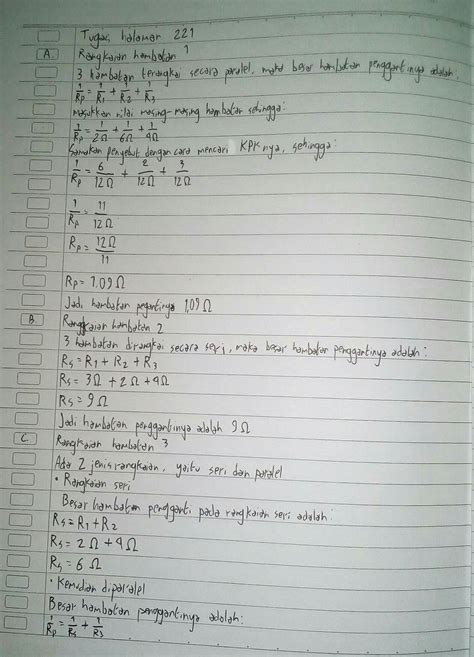 Tugas halaman 221
A Rangkaian hambatan 1
3 hambatan terangkai secara paralel, maka besar hambatan penggantinya adalah:
1/Rp = 1/R1 + 1/R2 + 1/R3
Masukkan nilai masing-masing hambatan sehingga:
1/Rp = 1/2Ω + 1/6Ω + 1/4Ω
Samakan penyebut dengan cara mencari KPK nya, sehingga:
1/Rp = 6/12Ω + 2/12Ω + 3/12Ω
1/Rp = 11/12Ω
Rp = 12Ω/11
Rp = 1,09Ω
Jadi hambatan pegantinya 1,09Ω
B. Rangkaian hambatan 2
3 hambatan dirangkai secara seri, maka besar hambatan penggantinya adalah:
Rs = R1 + R2 + R3
Rs = 3Ω + 2Ω + 4Ω
Rs = 9Ω
Jadi hambatan penggantinya adalah 9Ω
C Rangkaian hambatan 3
Ada 2 jenis rangkaian, yaitu seri dan paralel
• Rangkaian seri
Besar hambatan pengganti pada rangkaian seri adalah:
Rs = R1 + R2
Rs = 2Ω + 4Ω
Rs = 6Ω
• Kemudian diparalel
Besar hambatan penggantinya adalah:
1/Rp = 1/Rs + 1/R3